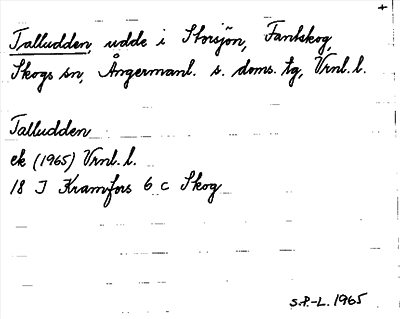 Talludden, udde i Storsjön, Fantskog,
Skogs sn, Ångermanl. s. doms. tg, Vrnl. l.
Talludden
ek (1965) Vrnl. l.
18 I Kramfors 6 c Skog
S.P.-L. 1965